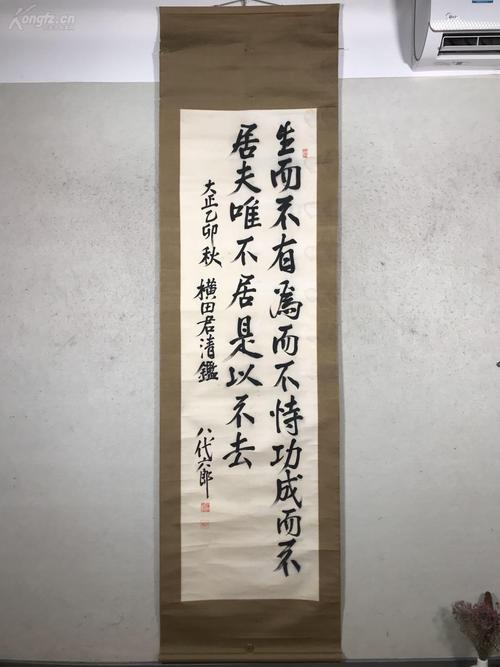 生而不有為而不恃功成而不
居夫唯不居是以不去
大正乙卯秋 横田君清鑑
八代六郎
Kongfz.cn